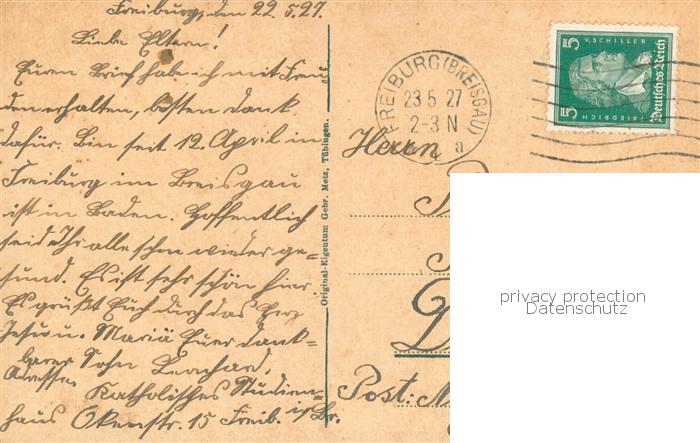 Freiburg, den 22.5.27.
Liebe Eltern!
Euern Brief habe ich mit Freu
den erhalten, besten Dank
dafür. Bin seit 12. April in
Freiburg im Breisgau
ist in Baden. Hoffentlich
seid Ihr alle schon wieder ge=
sund. Es ist sehr schön hier.
Es grüßt Euch durch das Herz
Jesu u. Mariä Euer dank=
barer Sohn Leonhard.
Adresse. Katholisches Studien-
haus Okenstr. 15 Freib. i/Br.
Original-Eigentum Gebr. Metz, Tübingen.
FREIBURG (BREISGAU)
23.5.27
2-3 N
a
5
V. SCHILLER
Deutsches Reich
FRIEDRICH
5
Herrn
Post:
privacy protection
Datenschutz